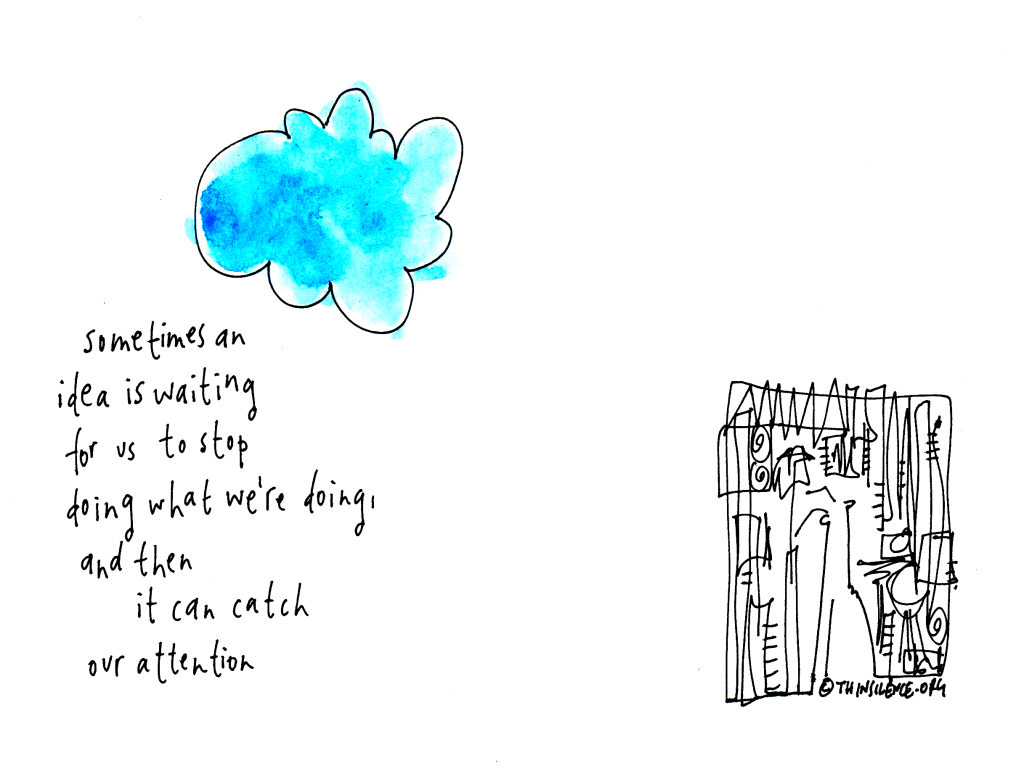 sometimes an
idea is waiting
for us to stop
doing what we're doing,
and then
it can catch
our attention
© THINSILENCE.ORG